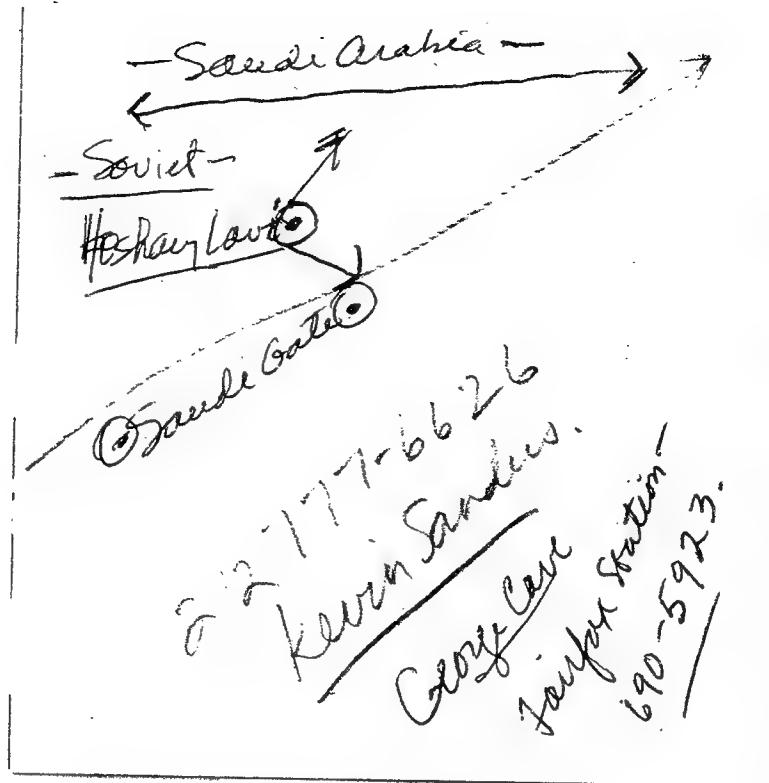 - Saudi Arabia -
- Soviet -
Hoshang Lavi
Saudi Gate
2 2 777-6626
Kevin Sanders.
George Cave
Fairfax Station -
690-5923.